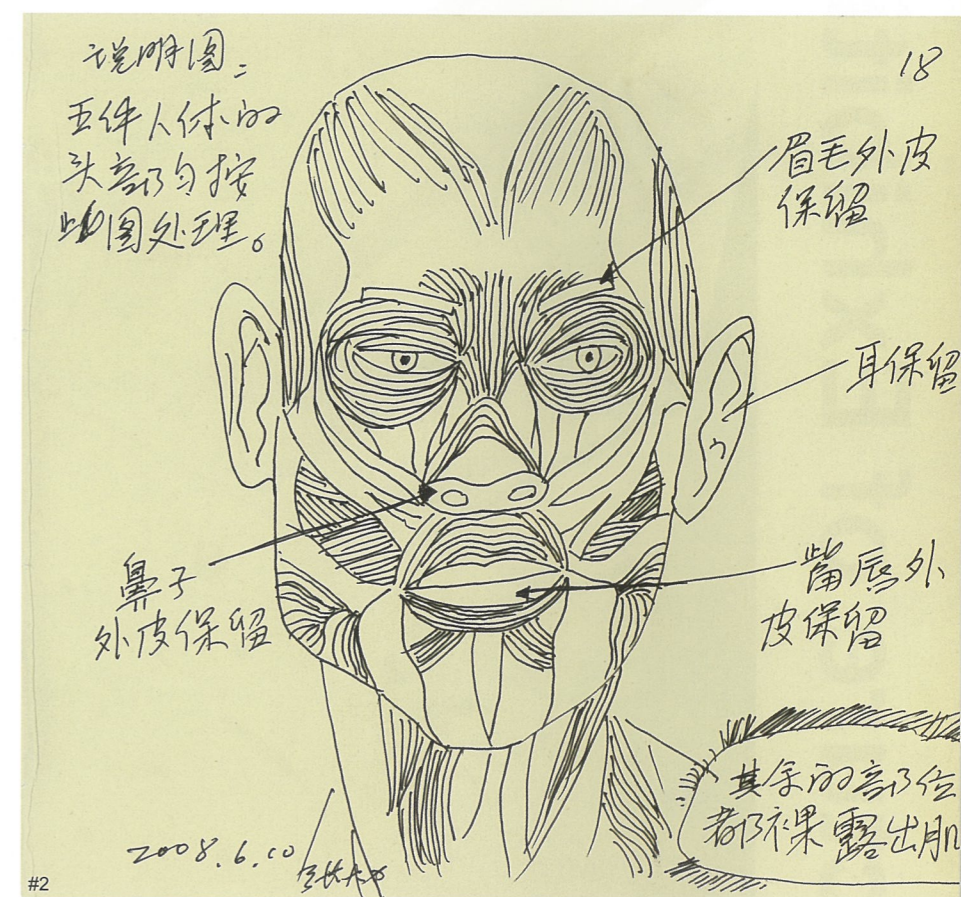 说明图:
五件人体的
头部匀按
此图处理。
18
眉毛外皮
保留
耳保留
鼻子
外皮保留
嘴唇外
皮保留
其余的部位
都裸露出肌
2008.6.10
#2